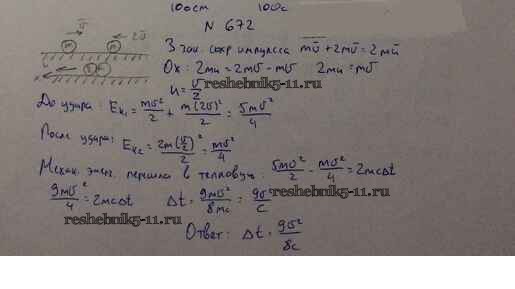 100cm 100c
N 672
v̄ 2v̄
m m
З зак. сохр импульса m̄v̄ + 2m̄v̄ = 2mū
Ox: 2mu = 2mv - mv 2mu = mv
reshebnik5-11.ru
u = v/2
До удара: Eк₁ = mv²/2 + m(2v)²/2 = 5mv²/4
После удара: Eк₂ = 2m(v/2)²/2 = mv²/4
Механ. энерг. перешла в тепловую: 5mv²/2 - mv²/4 = 2mcΔt
9mv²/4 = 2mcΔt Δt = 9mv²/8mc = 9v²/c
reshebnik5-11.ru reshebnik5-11.ru
Ответ: Δt = 9v²/8c